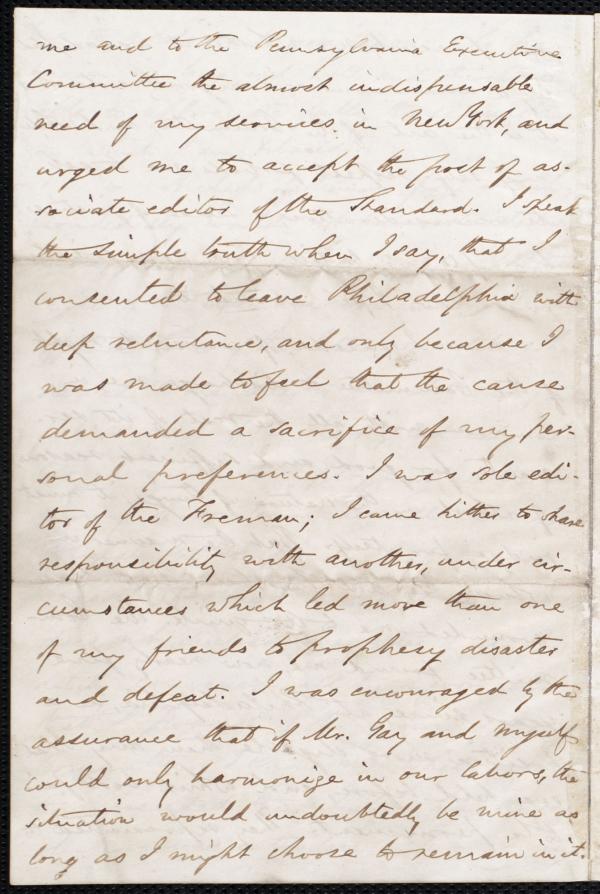 me and to the Pennsylvania Executive
Committee the almost indispensable
need of my services in New York, and
urged me to accept the post of as-
sociate editor of the Standard. I speak
the simple truth when I say, that I
consented to leave Philadelphia with
deep reluctance, and only because I
was made to feel that the cause
demanded a sacrifice of my per-
sonal preferences. I was sole edi-
tor of the Freman; I came hither to share
responsibility with another, under cir-
cumstances which led more than one
of my friends to prophesy disaster
and defeat. I was encouraged by the
assurance that if Mr. Gay and myself
could only harmonize in our labors, the
situation would undoubtedly be mine as
long as I might choose to remain in it.